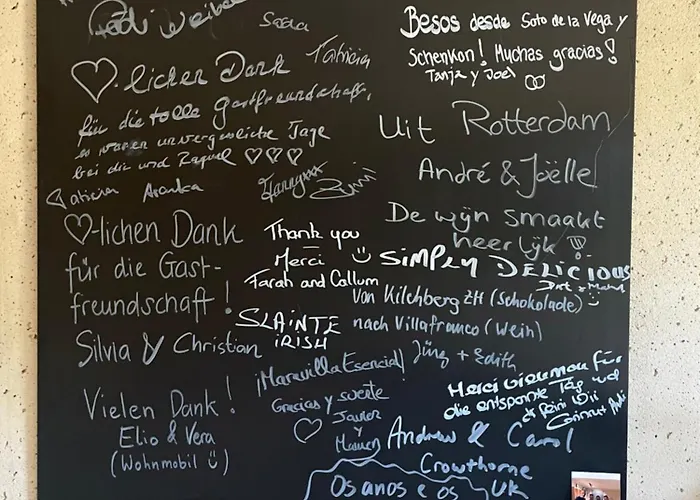 Sara
Patricia
♡-lichen Dank
für die tolle Gastfreundschaft,
es waren unvergessliche Tage
bei dir und Raquel ♡♡♡
Aranka
♡-lichen Dank
für die Gast-
freundschaft!
Silvia y Christian
Vielen Dank!
Elio & Vera
(Wohnmobil ü)
Besos desde Soto de la Vega y
Schenkon! Muchas gracias!
Tanja y Joel
Uit Rotterdam
André & Joëlle
De wijn smaakt
heerlijk
Thank you
Merci
Farah and Callum
SLAiNTE
iRiSH
SiMPLY DELiCiOUS
Von Kilchberg ZH (Schokolade)
nach Villafranco (Wein)
Jürg + Edith
¡Maravilla Esencial!
Gracias y suerte
Javier
y
Mamen
Merci vieumau für
die entspannte Täg und
Andrew & Carol
Crowthorne
UK
Os anos e os